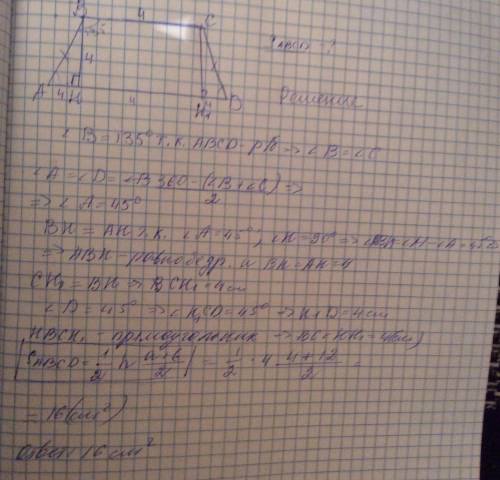 B 4 C
135°
4
A 4 H 4 H₁ D
SABCD = ?
Решение
∠B = 135° т.к. ABCD - р/б => ∠B = ∠C
∠A = ∠D = 360 - (∠B + ∠C) / 2 =>
=> ∠A = 45°
BH = AH т.к. ∠A = 45°, ∠H = 90° =>
=> ABH - равнобедр. и BH = AH = 4
CH₁ = BH => CH₁ = 4 см
∠D = 45° => ∠H₁CD = 45° => H₁D = 4 см
HBCH₁ - прямоугольник => BC = HH₁ = 4 (см)
SABCD = 1/2 h (a+b)/2 = 1/2 · 4 (4+12)/2 =
= 16 (см²)
Ответ: 16 см²